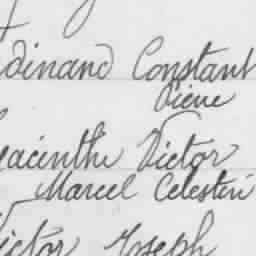 dinand Constant
Pierre
acinthe Victor
Marcel Celestin
ictor Joseph